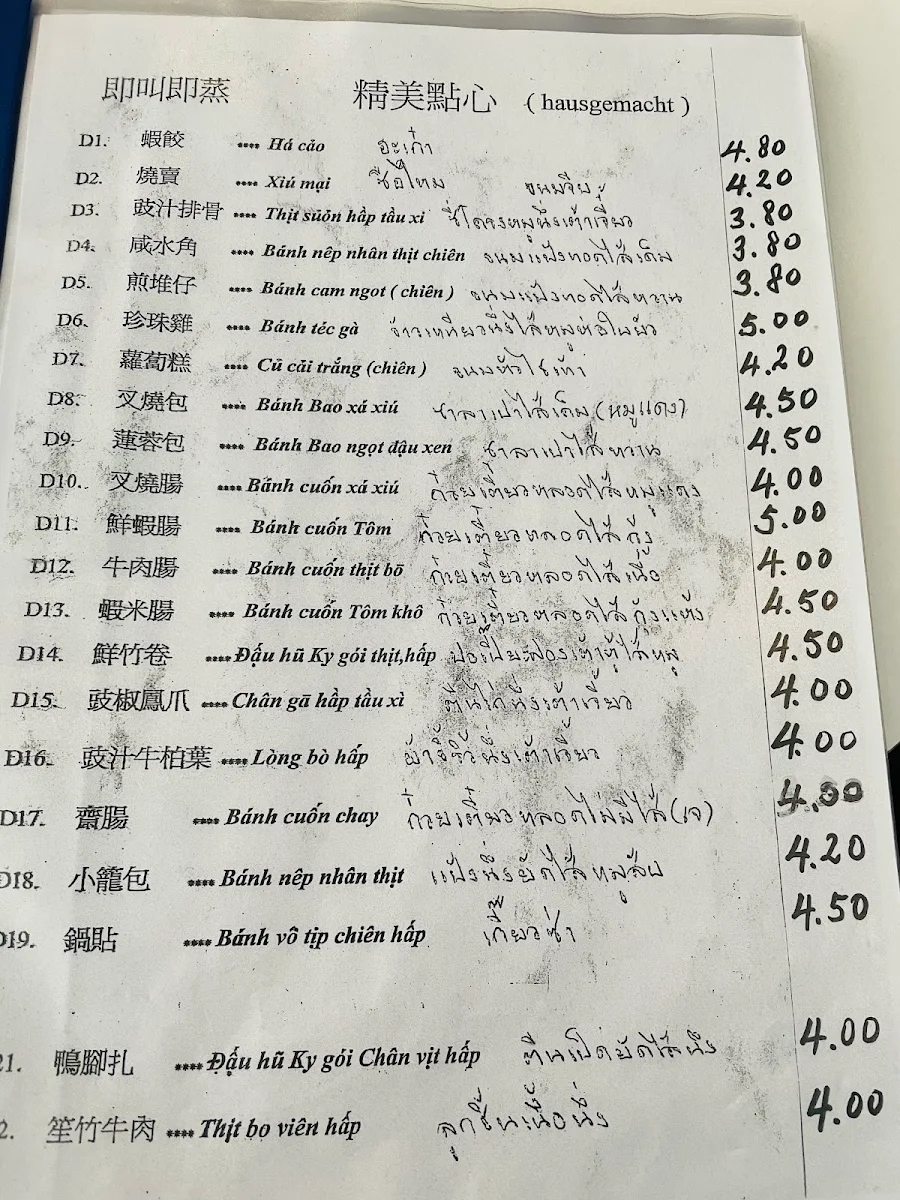 即叫即蒸 精美點心 ( hausgemacht )
D1. 蝦餃 .... Há cảo ฮะเก๋า 4.80
D2. 燒賣 .... Xiú mại ขนมจีบ 4.20
D3. 豉汁排骨 .... Thịt suồn hầp tầu xi ซี่โครงหมูนึ่งเต้าเจี้ยว 3.80
D4. 咸水角 .... Bánh nêp nhân thịt chiên ขนมแป้งทอดไส้เค็ม 3.80
D5. 煎堆仔 .... Bánh cam ngot ( chiên ) ขนมแป้งทอดไส้หวาน 3.80
D6. 珍珠雞 .... Bánh téc gà ข้าวเหนียวนึ่งไส้หมูห่อใบบัว 5.00
D7. 蘿蔔糕 .... Cũ cải trắng (chiên ) ขนมหัวไชเท้า 4.20
D8. 叉燒包 .... Bánh Bao xá xiú ซาลาเปาไส้เค็ม (หมูแดง) 4.50
D9. 蓮蓉包 .... Bánh Bao ngọt đậu xen ซาลาเปาไส้หวาน 4.50
D10. 叉燒腸 .... Bánh cuốn xá xiú ก๋วยเตี๋ยวหลอดไส้หมูแดง 4.00
D11. 鮮蝦腸 .... Bánh cuốn Tôm ก๋วยเตี๋ยวหลอดไส้กุ้ง 5.00
D12. 牛肉腸 .... Bánh cuốn thịt bō ก๋วยเตี๋ยวหลอดไส้เนื้อ 4.00
D13. 蝦米腸 .... Bánh cuốn Tôm khô ก๋วยเตี๋ยวหลอดไส้กุ้งแห้ง 4.50
D14. 鮮竹卷 .... Đậu hũ Ky gói thịt,hấp ไส้หมู 4.50
D15. 豉椒鳳爪 .... Chân gā hầp tầu xì ตีนไก่นึ่งเต้าเจี้ยว 4.00
D16. 豉汁牛柏葉 .... Lòng bò hấp ผ้าขี้ริ้วนึ่งเต้าเจี้ยว 4.00
D17. 齋腸 .... Bánh cuốn chay ก๋วยเตี๋ยวหลอดไม่มีไส้ (เจ) 4.00
D18. 小籠包 .... Bánh nêp nhân thịt แป้งนึ่งยัดไส้หมูสับ 4.20
D19. 鍋貼 .... Bánh vô tịp chiên hấp เกี๊ยวซ่า 4.50
21. 鴨腳扎 .... Đậu hũ Ky gói Chân vịt hấp ตีนเป็ดยัดไส้นึ่ง 4.00
2. 笙竹牛肉 .... Thịt bo viên hấp ลูกชิ้นเนื้อนึ่ง 4.00